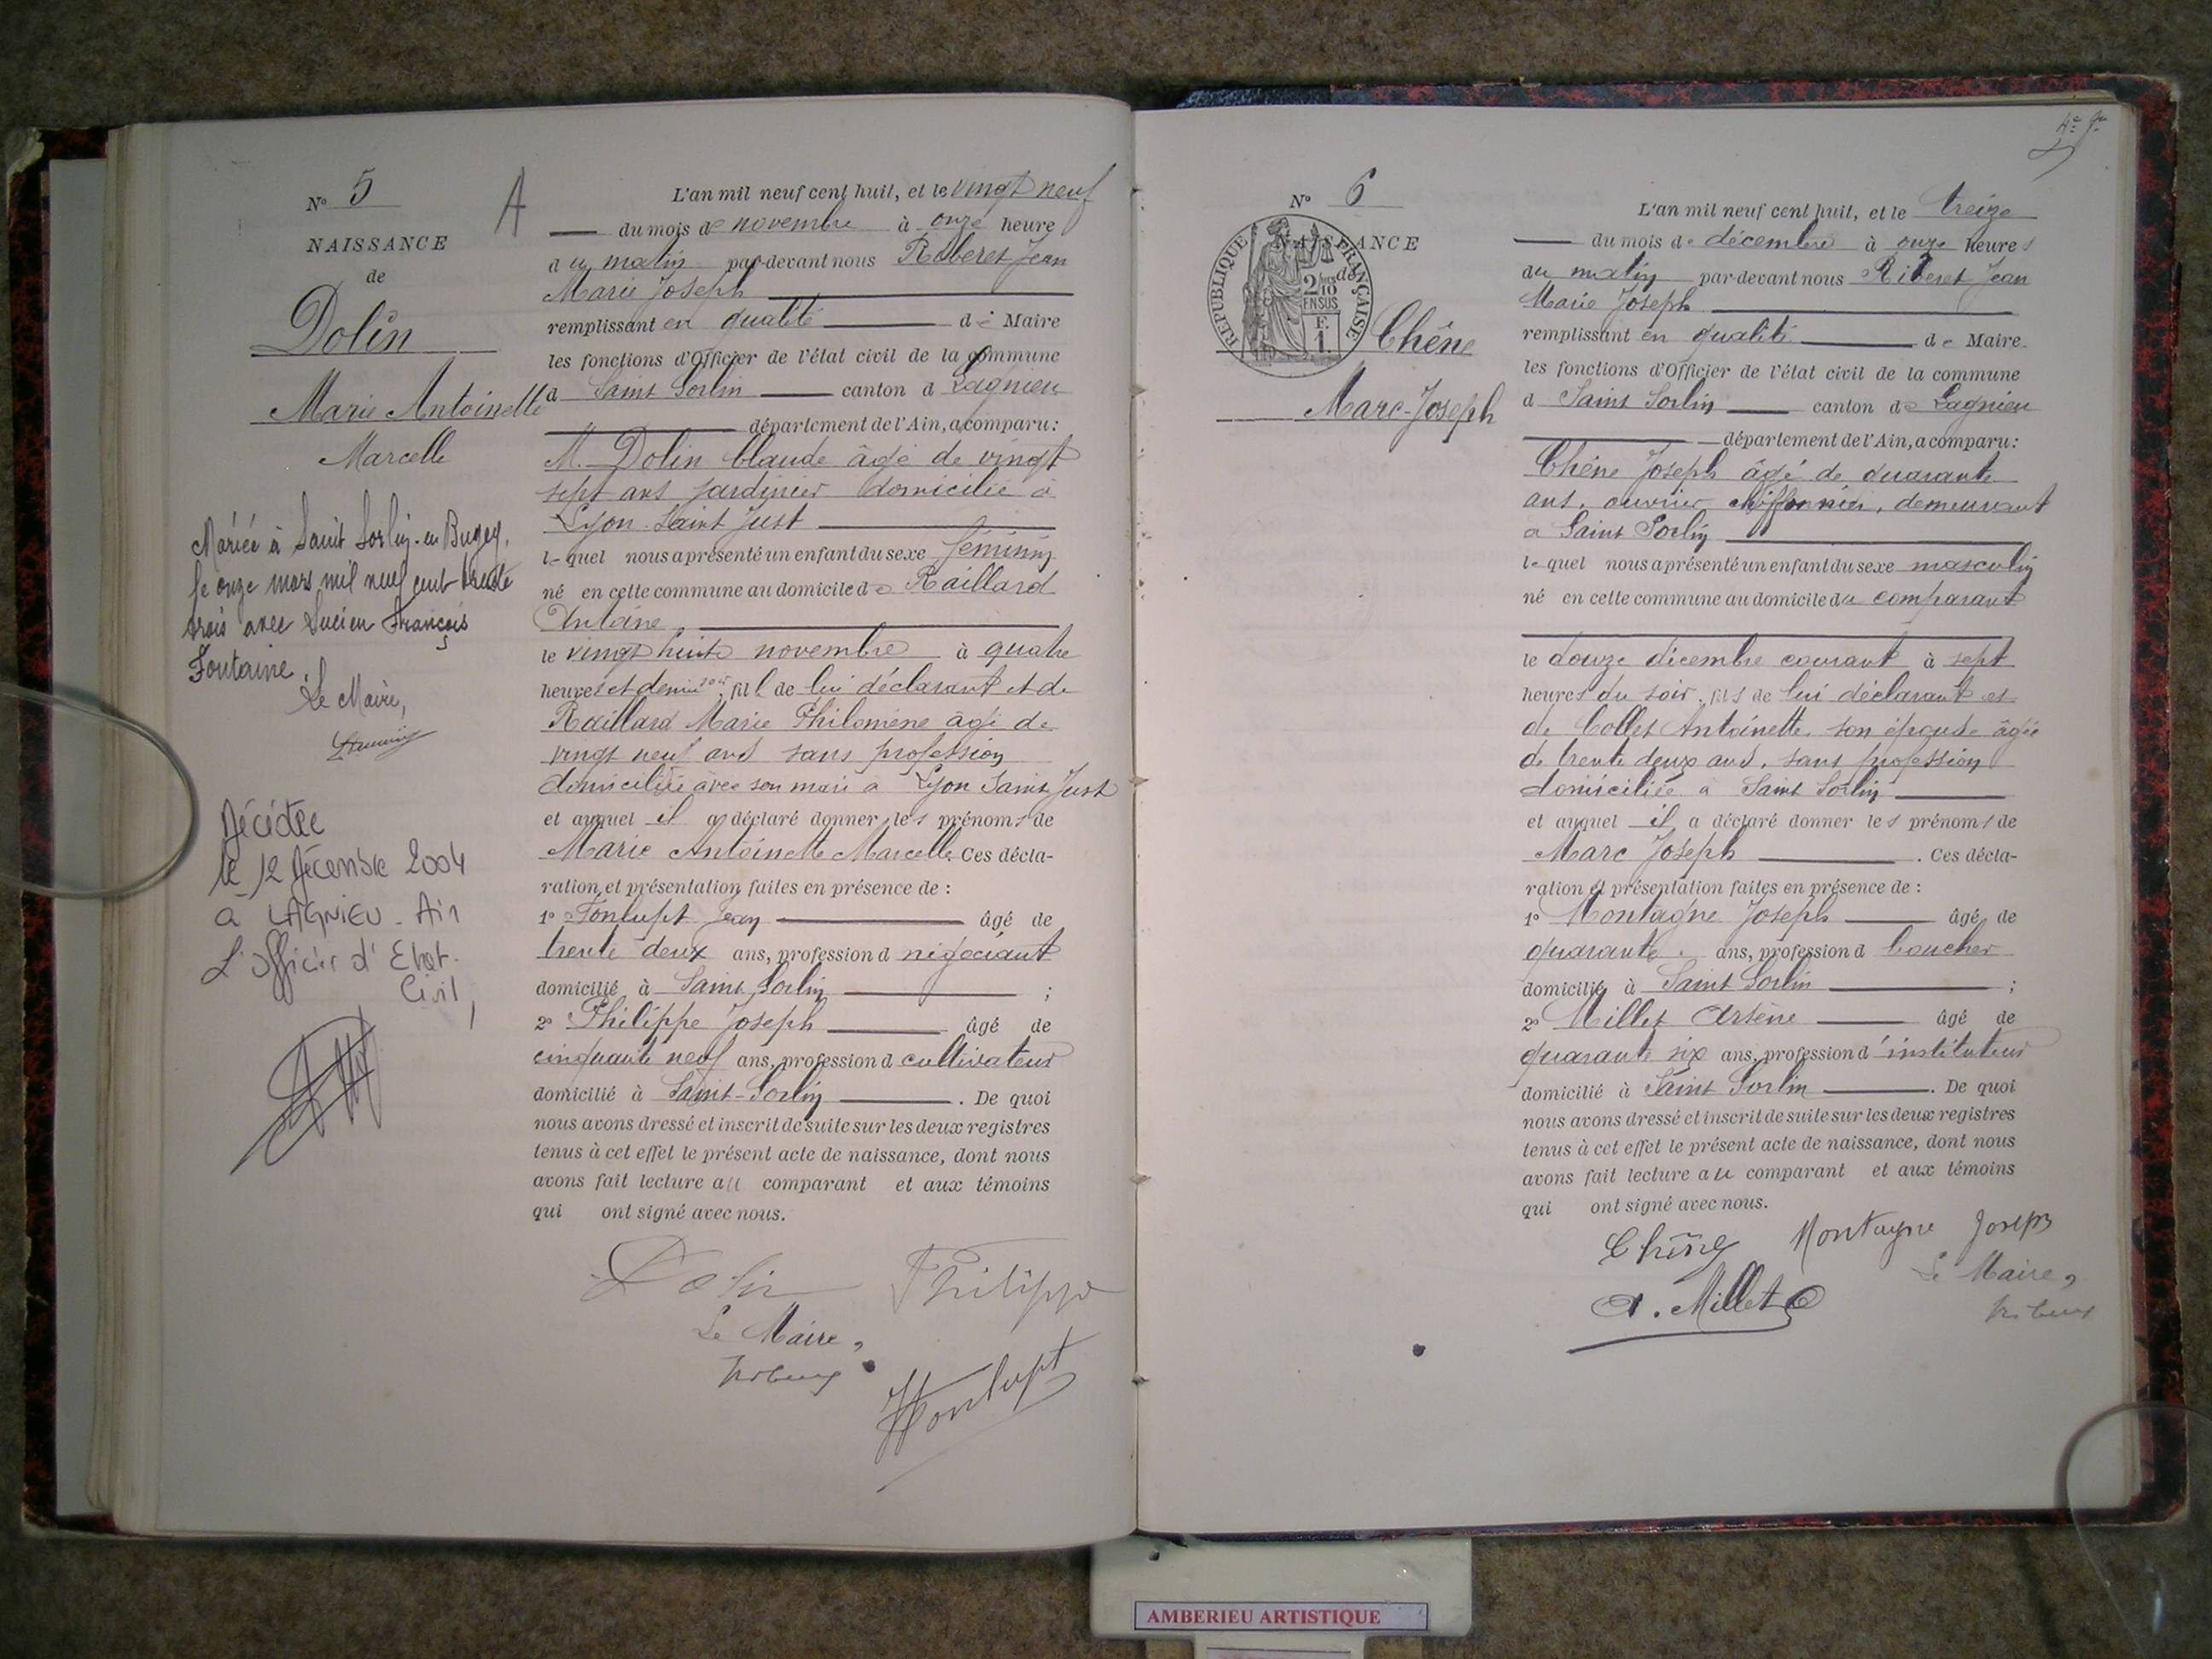 Nº 5
NAISSANCE
de
Dolin
Marie Antoinette
Marcelle
Mariée à Saint Sorlin-en-Bugey,
le onze mars mil neuf cent trente
trois avec Lucien François
Fontaine.
Le Maire,
Décédée
le 12 Décembre 2004
à LAGNIEU - Ain
L'officier d'Etat-
Civil,
A
L'an mil neuf cent huit, et le vingt neuf
du mois de novembre à onze heure
du matin par-devant nous Riberet Jean
Marie Joseph
remplissant en qualité de Maire
les fonctions d'Officier de l'état civil de la commune
d Saint Sorlin canton d Lagnieu
département de l'Ain, a comparu:
M. Dolin Claude âgé de vingt
sept ans jardinier domicilié à
Lyon-Saint Just
lequel nous a présenté un enfant du sexe féminin
né en cette commune au domicile de Raillard
Antoine
le vingt huit novembre à quatre
heures et demie soir, fil l de lui déclarant et de
Raillard Marie Philomène âgé de
vingt neuf ans sans profession
domiciliée avec son mari à Lyon Saint Just
et auquel il a déclaré donner les prénoms de
Marie Antoinette Marcelle Ces décla-
ration et présentation faites en présence de :
1º Fonlupt Jean âgé de
trente deux ans, profession d négociant
domicilié à Saint Sorlin ;
2º Philippe Joseph âgé de
cinquante neuf ans, profession d cultivateur
domicilié à Saint-Sorlin . De quoi
nous avons dressé et inscrit de suite sur les deux registres
tenus à cet effet le présent acte de naissance, dont nous
avons fait lecture au comparant et aux témoins
qui ont signé avec nous.
Dolin Philippe
Le Maire,
Riberet
JFonlupt
Nº 6
NAISSANCE
de
RÉPUBLIQUE FRANÇAISE
2/10
EN SUS
F.
1.
Chêne
Marc-Joseph
L'an mil neuf cent huit, et le treize
du mois de décembre à onze heures
du matin par-devant nous Riberet Jean
Marie Joseph
remplissant en qualité de Maire
les fonctions d'Officier de l'état civil de la commune
d Saint Sorlin canton de Lagnieu
département de l'Ain, a comparu:
Chêne Joseph âgé de quarante
ans, ouvrier chiffonnier, demeurant
à Saint Sorlin
lequel nous a présenté un enfant du sexe masculin
né en cette commune au domicile du comparant
le douze décembre courant à sept
heures du soir, fils de lui déclarant et
de Collet Antoinette son épouse âgée
de trente deux ans, sans profession
domiciliée à Saint Sorlin
et auquel il a déclaré donner les prénoms de
Marc Joseph . Ces décla-
ration et présentation faites en présence de :
1º Montagne Joseph âgé de
quarante ans, profession d boucher
domicilié à Saint Sorlin ;
2º Millet Arsène âgé de
quarante six ans, profession d'instituteur
domicilié à Saint Sorlin . De quoi
nous avons dressé et inscrit de suite sur les deux registres
tenus à cet effet le présent acte de naissance, dont nous
avons fait lecture au comparant et aux témoins
qui ont signé avec nous.
Chêne Montagne Joseph
A. Millet Le Maire,
Riberet
AMBERIEU ARTISTIQUE